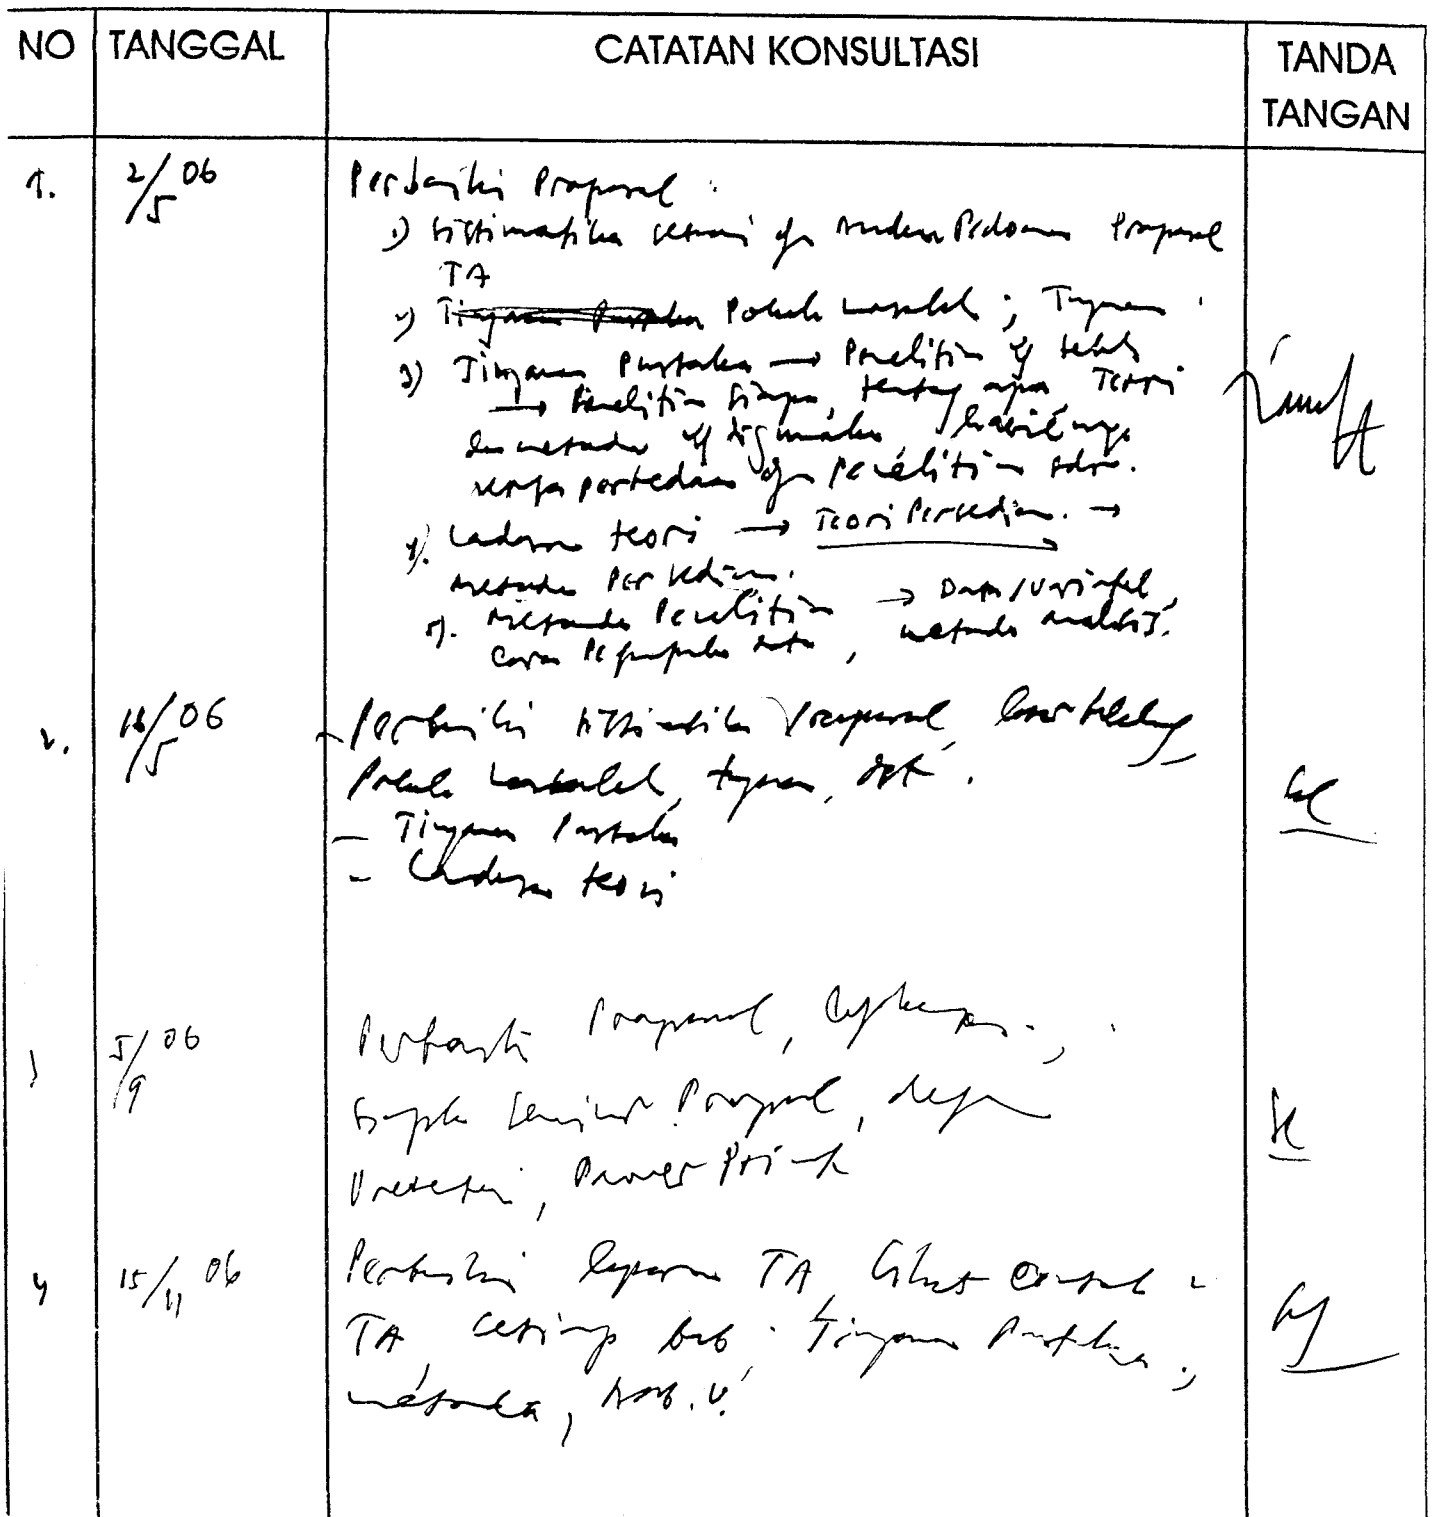 NO TANGGAL CATATAN KONSULTASI TANDA
TANGAN
1. 2/5 06 Perbaiki Proposal :
1) Sistimatika sesuai dg Pedoman Proposal
TA
2) Tinjauan Pustaka Pokok masalah ; Tujuan
3) Tinjauan Pustaka → Penelitian yg telah
→ Penelitian siapa, tentang apa, Teori
dan metode yg digunakan, hasilnya
serta perbedaan dg penelitian sdr.
4). Landasan teori → Teori Persediaan. →
Metode Persediaan.
5). Metode Penelitian → Data/Variabel,
cara Pengumpulan data, metode analisis.
2. 16/5 06 - Perbaiki sistimatika proposal, latar belakang,
Pokok masalah, tujuan, dst.
- Tinjauan Pustaka
- Landasan teori
3 5/9 06 Perbaiki Proposal, lengkapi.,
Siapkan Seminar Proposal, dengan
Presentasi, Power Point
4 15/11 06 Perbaiki laporan TA, lihat contoh -
TA, setiap bab ; Tinjauan Pustaka ;,
metode, bab. V.